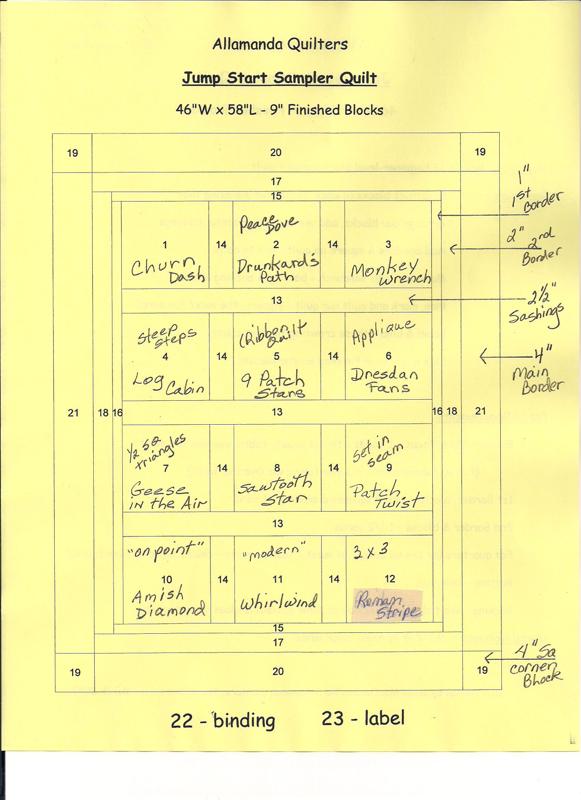 Allamanda Quilters
Jump Start Sampler Quilt
46"W x 58"L - 9" Finished Blocks
19 20 19
17
15
1"
1st
Border
Peace
Dove
1 14 2 14 3
Churn
Dash
Drunkard's
Path
Monkey
Wrench
2"
2nd
Border
13
2½"
Sashings
Steep
steps
(Ribbon
Quilt
Applique
4 14 5 14 6
Log
Cabin
9 Patch
Stars
Dresdan
Fans
4"
Main
Border
21 18 16 13 16 18 21
½ sq
triangles
set in
seam
7 14 8 14 9
Geese
in the Air
Sawtooth
Star
Patch
Twist
13
"on point"
"modern"
3 x 3
10 14 11 14 12
Amish
Diamond
Whirlwind
Roman
Stripe
15
17
19 20 19
4" Sq
corner
Block
22 - binding 23 - label